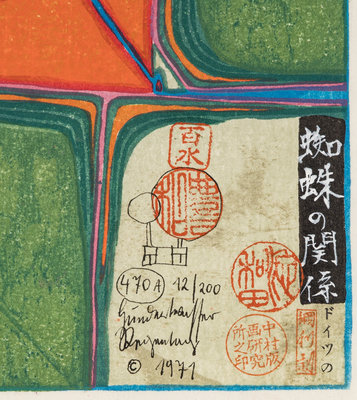 蜘蛛の関係
ドイツの
百水
470A 12/200
Hundertwasser
Regentag
© 1971
中村版
画研究
所之印